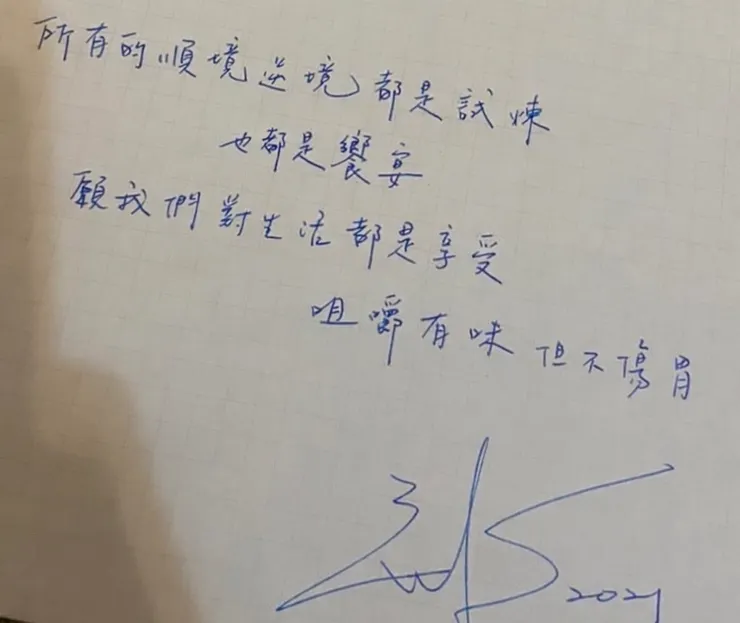 所有的順境逆境都是試煉
也都是饗宴
願我們對生活都是享受
咀嚼有味但不傷胃
2021